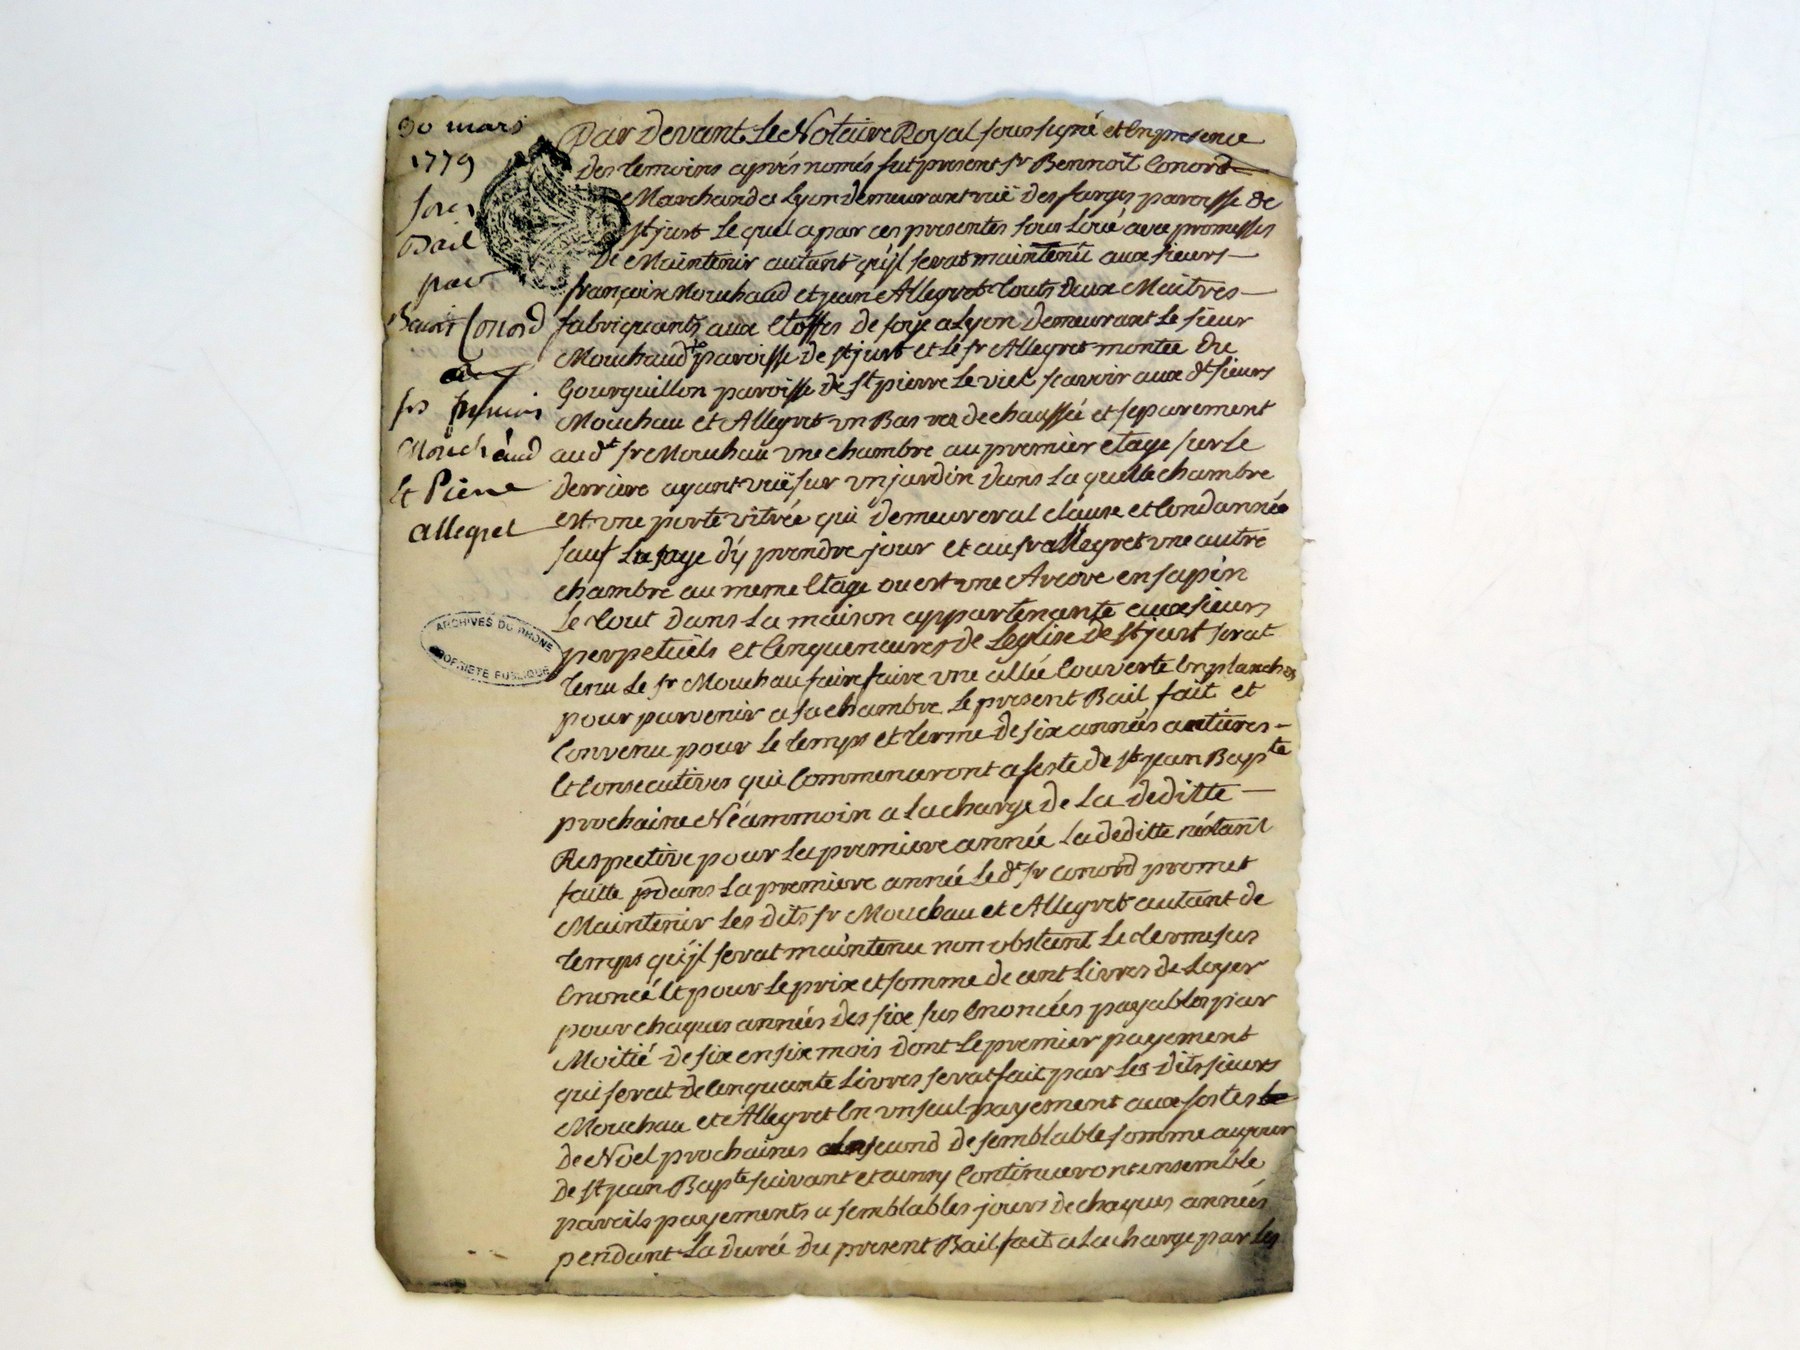 30 mars
1779
Sous
Bail
par
Benoit Conord
aux
srs françois
Mouchaud
et Pierre
allegret
ARCHIVES DU RHONE
PROPRIÉTÉ PUBLIQUE
Par Devant Le Notaire Royal sousigné et En presence
Des temoins aprés només fut present sr Bennoit Conord
Marchand a Lyon demeurant ruë Des farges paroisse de
st just Le quel a par ces presentes sous Loué avec promesses
De Maintenir autant qu'jl serat maintenü aux sieurs
françoix Mouchaud et jean Allegret touts deux Maitres
fabriquants aux Etoffes de soye a Lyon demeurant Le sieur
Mouchaud paroisse de st just et Le sr Allegret montée du
Gourguillon paroisse de st pierre Le vieL scavoir aux dt sieurs
Mouchau et Allegret un Bas rez de chaussée et separement
au dt sr Mouchau une chambre au premier etage sur Le
Derriere ayant vuë sur un jardin dans La quelle chambre
est une porte vitrée qui demeurerat clause et Condannée
sauf Lusage d'y prendre jour et au sr allegret une autre
chambre au meme Etage ou est une Arcove en sapin
Le tout dans La maison appartenante aux sieurs
perpetüels et Cinqueneures de Leglise de st just serat
tenu Le sr Mouchau faire faire une allée Couverte En planches
pour parvenir a sa chambre Le present Bail fait et
Convenu pour Le temps et terme de six années antieres
Et Consecutives qui Commenceront a feste de st jean Bapte
prochaine Néammoin a La charge de La deditte
Respective pour La premiere année La deditte n'etant
faitte pdans La premiere année Le dt sr Conord promet
Maintenir Les dits sr Mouchau et Allegret autant de
temps qu'jl serat maintenu non obstant Le terme sus
Enoncé Et pour Le prix et somme de cent Livres de Loyer
pour chaques années des six sus Enoncées payables par
Moitié de six en six mois dont Le premier payement
qui serat de Cinquante Livres serat fait par Les dits sieurs
Mouchau et Allegret En un seul payement aux festes
De Noel prochaines segond de semblable somme au jour
De st jean Bapte suivant et aunsy Continueront ensemble
pareils payements a semblables jours de chaques années
pendant La durée du present Bail fait a La charge par Les